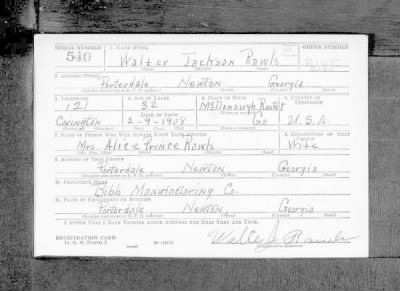 SERIAL NUMBER 1. NAME (Print) ORDER NUMBER
540 Walter Jackson Rawls
2. ADDRESS (Print)
Porterdale Newton Georgia
3. TELEPHONE 4. AGE IN YEARS 5. PLACE OF BIRTH 6. COUNTRY OF CITIZENSHIP
121 32 McDonough
DATE OF BIRTH
Covington 2-9-1908 Ga U.S.A
7. NAME OF PERSON WHO WILL ALWAYS KNOW YOUR ADDRESS 8. RELATIONSHIP OF THAT PERSON
Mrs. Alice Prince Rawls Wife
9. ADDRESS OF THAT PERSON
Porterdale Newton Georgia
10. EMPLOYER'S NAME
Bibb Manufactoring Co.
11. PLACE OF EMPLOYMENT OR BUSINESS
Porterdale Newton Georgia
I AFFIRM THAT I HAVE VERIFIED ABOVE ANSWERS AND THAT THEY ARE TRUE.
REGISTRATION CARD
D. S. S. FORM 1 Walter J Rawls